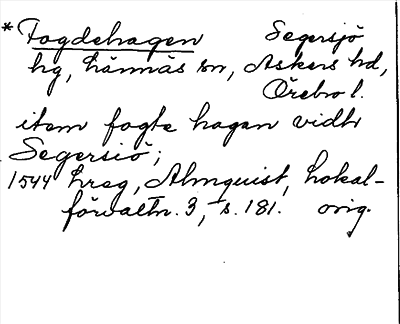 *Fogdehagen Segersjö
hg, Lännäs sn, Askers hd,
Örebro l.
item fogte hagen vidh
Segersiö;
1544 hreg, Almquist, Lokal-
förvaltn. 3, s. 181. orig.